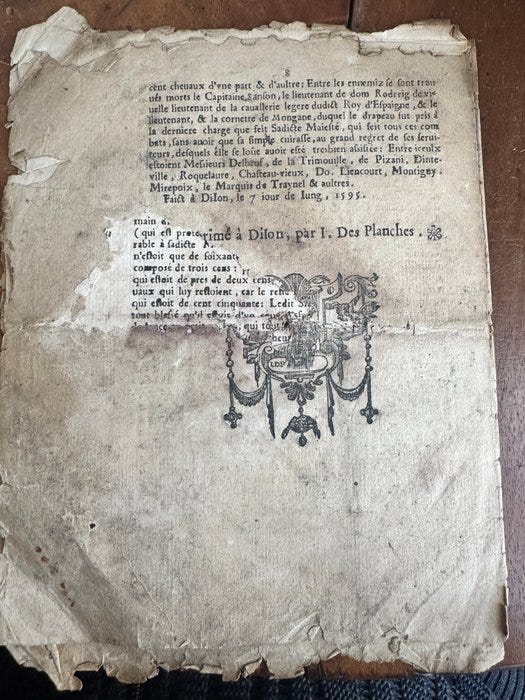 8
cent cheuaux d'vne part & d'aultre: Entre les ennemiz se sont trou
ués morts le Capitaine Sanson, le lieutenant de dom Roderig de vie
uelle lieutenant de la cauallerie legere dudict Roy d'Espaigne, & le
lieutenant, & la cornette de Mongane, duquel le drapeau fut pris à
la derniere charge que feit Sadicte Maiesté, qui feit tous ces com
bats, sans auoir que sa simple cuirasse, au grand regret de ses serui-
teurs, desquels elle se loüe auoir esté tresbien assistée: Entre iceulx
estoient Messieurs Delbeuf, de la Trimouille, de Pizani, Dinte-
ville, Roquelaure, Chasteau-vieux, Do. Liencourt, Montigny.
Mirepoix, le Marquis de Traynel & aultres.
Faict à Dison, le 7 iour de Iung, 1595.
main
(qui est prote
rimé à Dison, par I. Des Planches.
rable à sadicte
n'estoit que de soixant
composé de trois cens:
qui estoit de pres de deux cens
uaux qui luy restoient, car le
qui estoit de cent cinquante: Ledit
tout blessé qu'il estoit d'un
qui tout
LDP